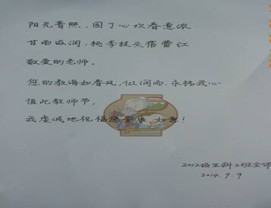 阳光普照,园丁心坎春意浓
甘雨滋润,桃李枝头蓓蕾红
敬爱的老师,
您的教海如春风,似润雨,永铭我心
值此教师节,
我虔诚地祝福您
2014.9.9